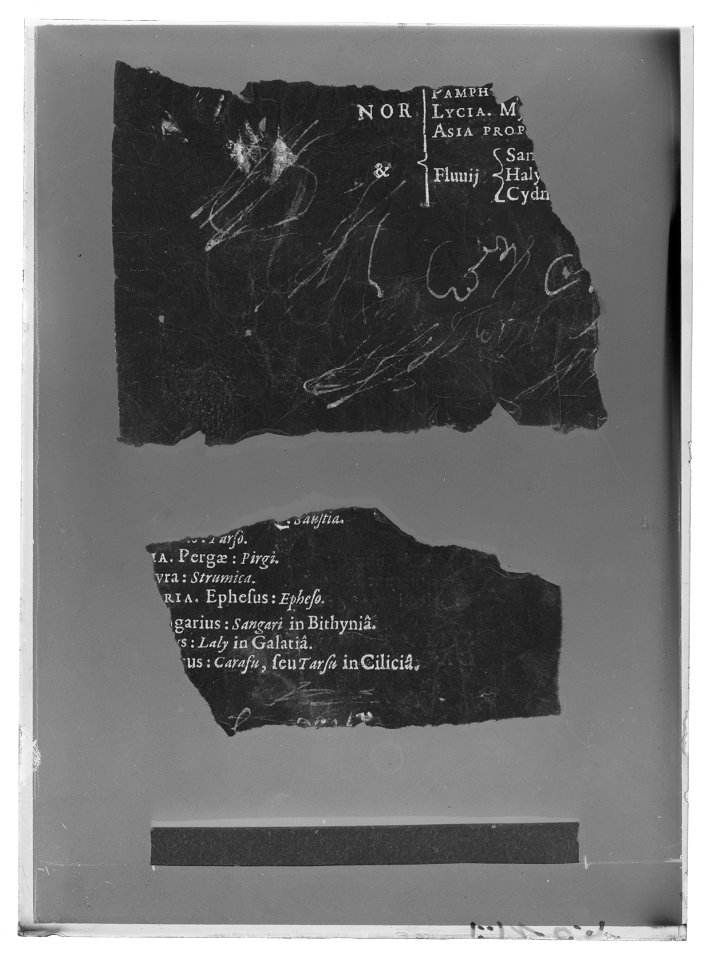 PAMPH
NOR LYCIA. My
ASIA PROP
San
& Fluuij Haly
Cydn
Sauſtia.
: Tarſo.
IA. Pergæ : Pirgi.
yra : Strumica.
RIA. Epheſus : Epheſo.
garius : Sangari in Bithyniâ.
ys : Laly in Galatiâ.
us : Caraſu, ſeu Tarſu in Ciliciâ.